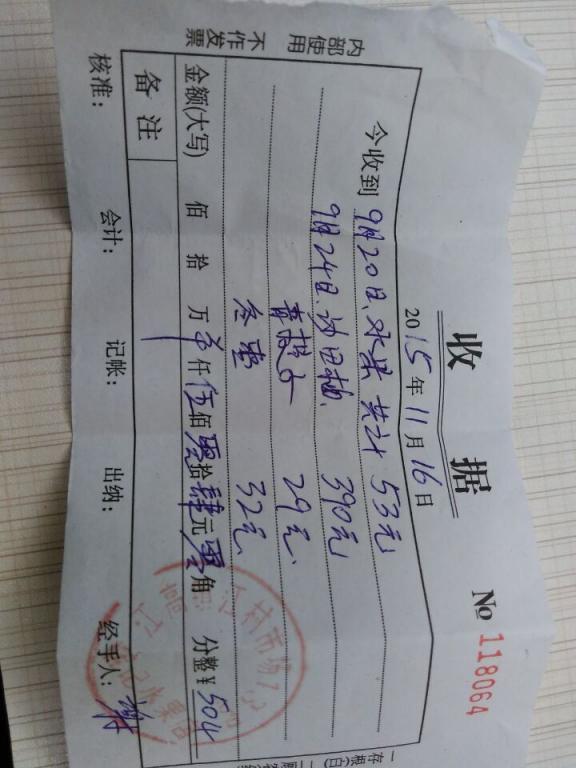 收 据
No 118064
2015年11月16日
今收到 9月20日、水果 共计 53元
9月24日、沙田柚 390元
青提子 29元
32元
金额(大写) 佰 拾 万 仟 伍 佰 零 拾 肆 元 零 角 分 整 ¥ 504
备注
核准: 会计: 记帐: 出纳: 经手人: 谢
内部使用
不作发票
江村市场